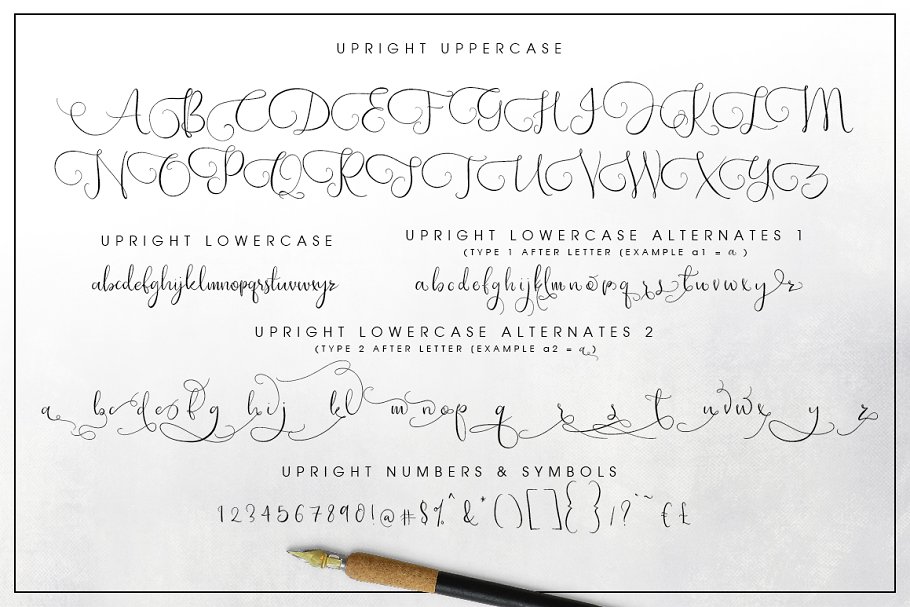 UPRIGHT UPPERCASE
ABCDEFGHIJKLM
NOPQRSTUVWXYZ
UPRIGHT LOWERCASE
abcdefghijklmnopqrstuvwxyz
UPRIGHT LOWERCASE ALTERNATES 1
(TYPE 1 AFTER LETTER (EXAMPLE a1 = a )
abcdefghijklmnopqrstuvwxyz
UPRIGHT LOWERCASE ALTERNATES 2
(TYPE 2 AFTER LETTER (EXAMPLE a2 = a)
a bcdefg hij kl mnop q r s t uvwx y z
UPRIGHT NUMBERS & SYMBOLS
1234567890!@#$%^&*()[]{}/?¨~ €£